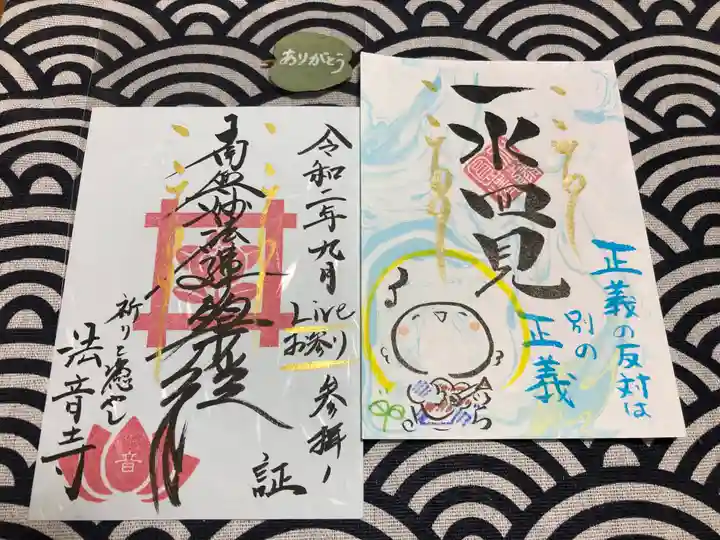 ありがとう
令和二年九月
Live
お参り
参拝ノ
証
南無妙法蓮華経
祈りと癒やし
法音寺
音
一水四見
正義の反対は
別の
正義